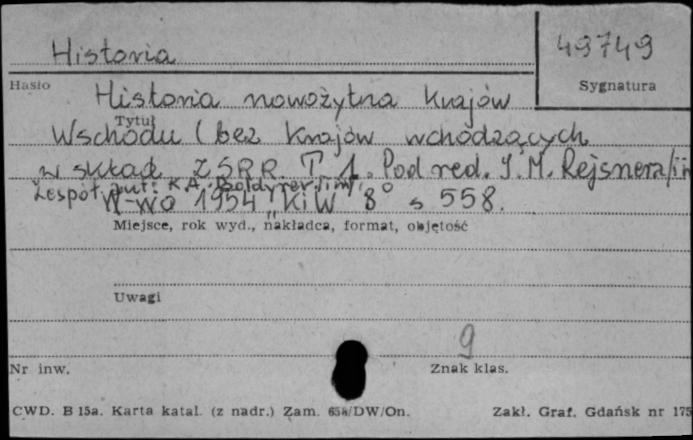 Historia
49749
Hasło
Sygnatura
Historia nowożytna Krajów
Tytuł
Wschodu (bez Krajów wchodzących
w skład ZSRR. T. 1. Pod red. I. M. Rejsnera/i in
Zespół aut: K.A. Boldyrev /i in/.
W-wa 1954 "KiW" 8° s 558.
Miejsce, rok wyd., nakładca, format, objętość
Uwagi
9
Nr inw.
Znak klas.
CWD. B 15a. Karta katal. (z nadr.) Zam. 65a/DW/On.
Zakł. Graf. Gdańsk nr 175